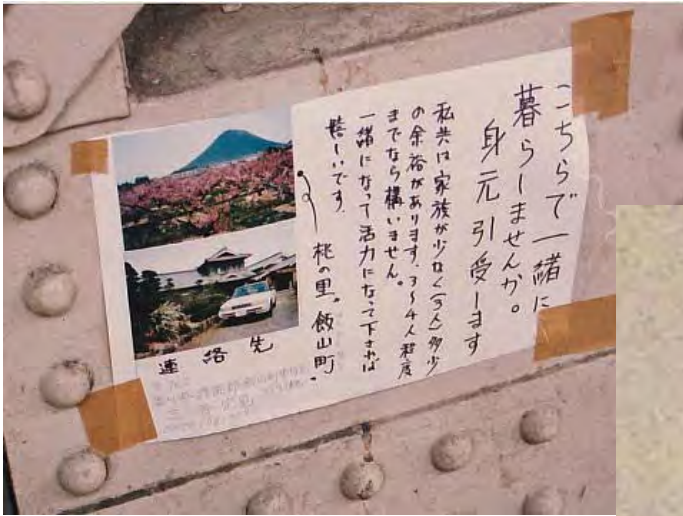 こちらで一緒に
暮らしませんか。
身元引受します
私共は家族が少なく(3人)多少
の余裕があります、3〜4人程度
までなら構いません。
一緒になって活力になって下されば
嬉しいです。
桃の里。飯山町。
連絡先